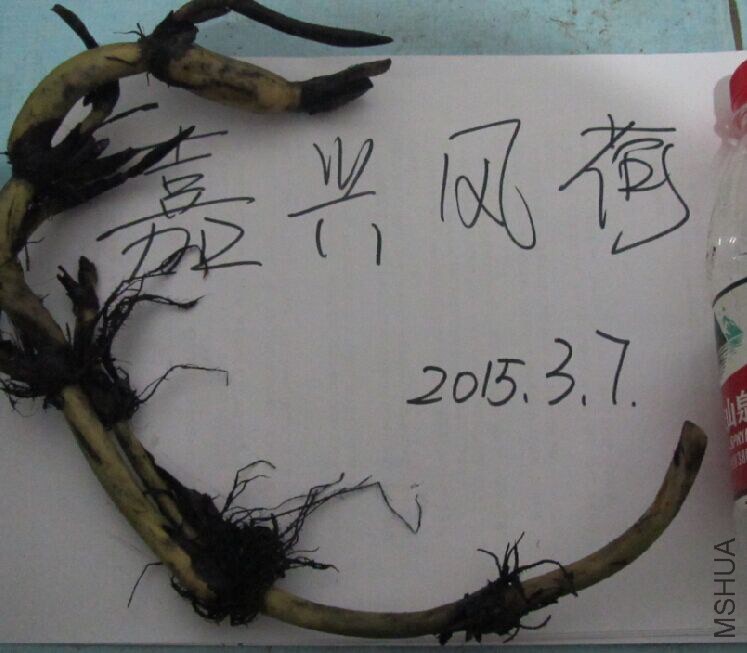 嘉兴风荷
2015.3.7.
山泉
MSHUA